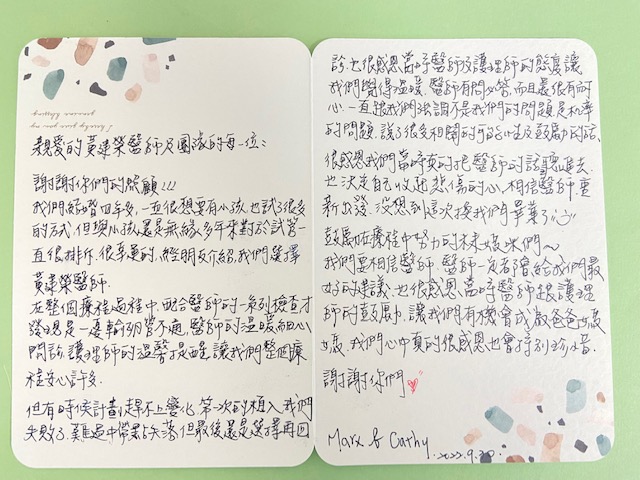 親愛的黃建榮醫師及團隊的每一位:
謝謝你們的照顧!!!
我們結婚四年多,一直很想要有小孩,也試了很多
的方式,但與小孩還是無緣,多年來對於試管一
直很排斥,很幸運的,經朋友介紹,我們選擇
黃建榮醫師.
在整個療程過程中,配合醫師的一系列檢查才
發現是一邊輸卵管不通,醫師的溫暖細心
問診,護理師的溫馨提醒,讓我們整個療
程安心許多.
但有時候計劃趕不上變化,第一次的植入我們
失敗了.難過中帶點失落,但最後還是選擇再回
診,也很感恩當時醫師及護理師的態度讓
我們覺得溫暖.醫師有問必答,而且還很有耐
心,一直跟我們強調不是我們的問題是机率
的問題,說了很多相關的可能性及鼓勵的話,
很感恩我們當時真的把醫師的話聽進去,
也決定自己收起悲傷的心,相信醫師.重
新出發,沒想到這次換我們畢業了
鼓勵在療程中努力的準媽咪們~
我們要相信醫師,醫師一定會給我們最
好的建議,也很感恩當時醫師跟護理
師的鼓勵,讓我們有機會成為爸爸媽
媽.我們心中真的很感恩也會特別珍惜.
謝謝你們
Marx & Cathy.
2022.9.30.